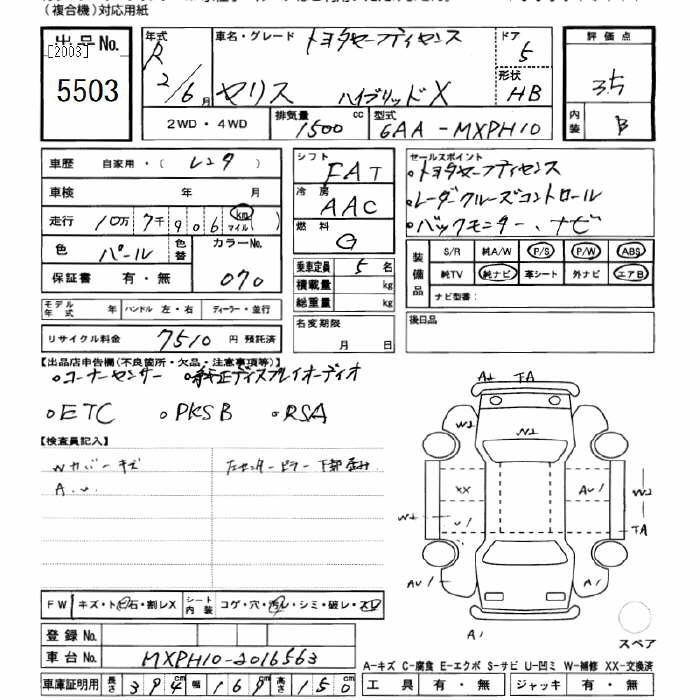 （複合機）対応用紙
出品No.
[2003]
5503
年式
R
2/6月
車名・グレード
トヨタセーフティセンス
ヤリス ハイブリッドX
ドア
5
形状
HB
評価点
3.5
内装
B
2WD・4WD
排気量
1500
cc
型式
6AA-MXPH10
車歴
自家用・（レンタ）
車検
年 月
走行
10万7千906
km
マイル
色
パール
色替
カラーNo.
070
保証書
有・無
シフト
FAT
冷房
AAC
燃料
G
乗車定員
5名
積載量
kg
総重量
kg
名変期限
月 日
セールスポイント
・トヨタセーフティセンス
・レーダークルーズコントロール
・バックモニター、ナビ
装備品
S/R 純A/W P/S P/W ABS
純TV 純ナビ 革シート 外ナビ エアB
ナビ型番：
後日品
モデル年式 年 ハンドル 左・右 ディーラー・並行
リサイクル料金 7510 円 預託済
【出品店申告欄(不良箇所・欠品・注意事項等)】
・コーナーセンサー ・純正ディスプレイオーディオ
・ETC ・PKSB ・RSA
【検査員記入】
Wカバーキズ
A.U.
左センターピラー下部歪み
A1 TA
W2
W2
XX
AU1
W2
W2
U1
TA
AU1
AU1
A1
スペア
FW キズ・ト石・割レX
シート内装 コゲ・穴・汚レ・シミ・破レ・スレ
登録No.
車台No.
MXPH10-2016563
車庫証明用 長さ 394cm 幅 169cm 高さ 150cm
A-キズ C-腐食 E-エクボ S-サビ U-凹ミ W-補修 XX-交換済
工具 有・無 ジャッキ 有・無